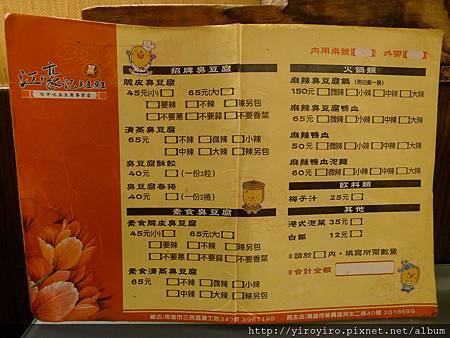 江豪記臭豆腐王
內用桌號 外帶
招牌臭豆腐
脆皮臭豆腐
45元(小) 65元(大)
要辣 不辣 辣另包
不要蔥 不要蒜 不要香菜
清蒸臭豆腐
65元 不辣 微辣 小辣
中辣 大辣 辣另包
臭豆腐酥餃
40元 (一份3粒)
臭豆腐春捲
40元 (一份2捲)
素食臭豆腐
素食脆皮臭豆腐
45元(小) 65元(大)
要辣 不辣 辣另包
不要蔥 不要蒜 不要香菜
素食清蒸臭豆腐
65元 不辣 微辣 小辣
中辣 大辣 辣另包
火鍋類
麻辣臭豆腐鍋 (附白飯一碗)
150元 微辣 小辣 中辣 大辣
麻辣臭豆腐鴨血
65元 微辣 小辣 中辣 大辣
麻辣鴨血
50元 微辣 小辣 中辣 大辣
麻辣鴨血泡麵
60元 微辣 小辣 中辣 大辣
飲料類
梅子汁 25元
其他
港式泡菜 35元
白飯 12元
請於 內,填寫所需數量
合計金額
總店/高雄市三民區建工路349號 3961199
民生店/高雄市新興區民生二路40號 2016699
http://yiroyiro.pixnet.net/album